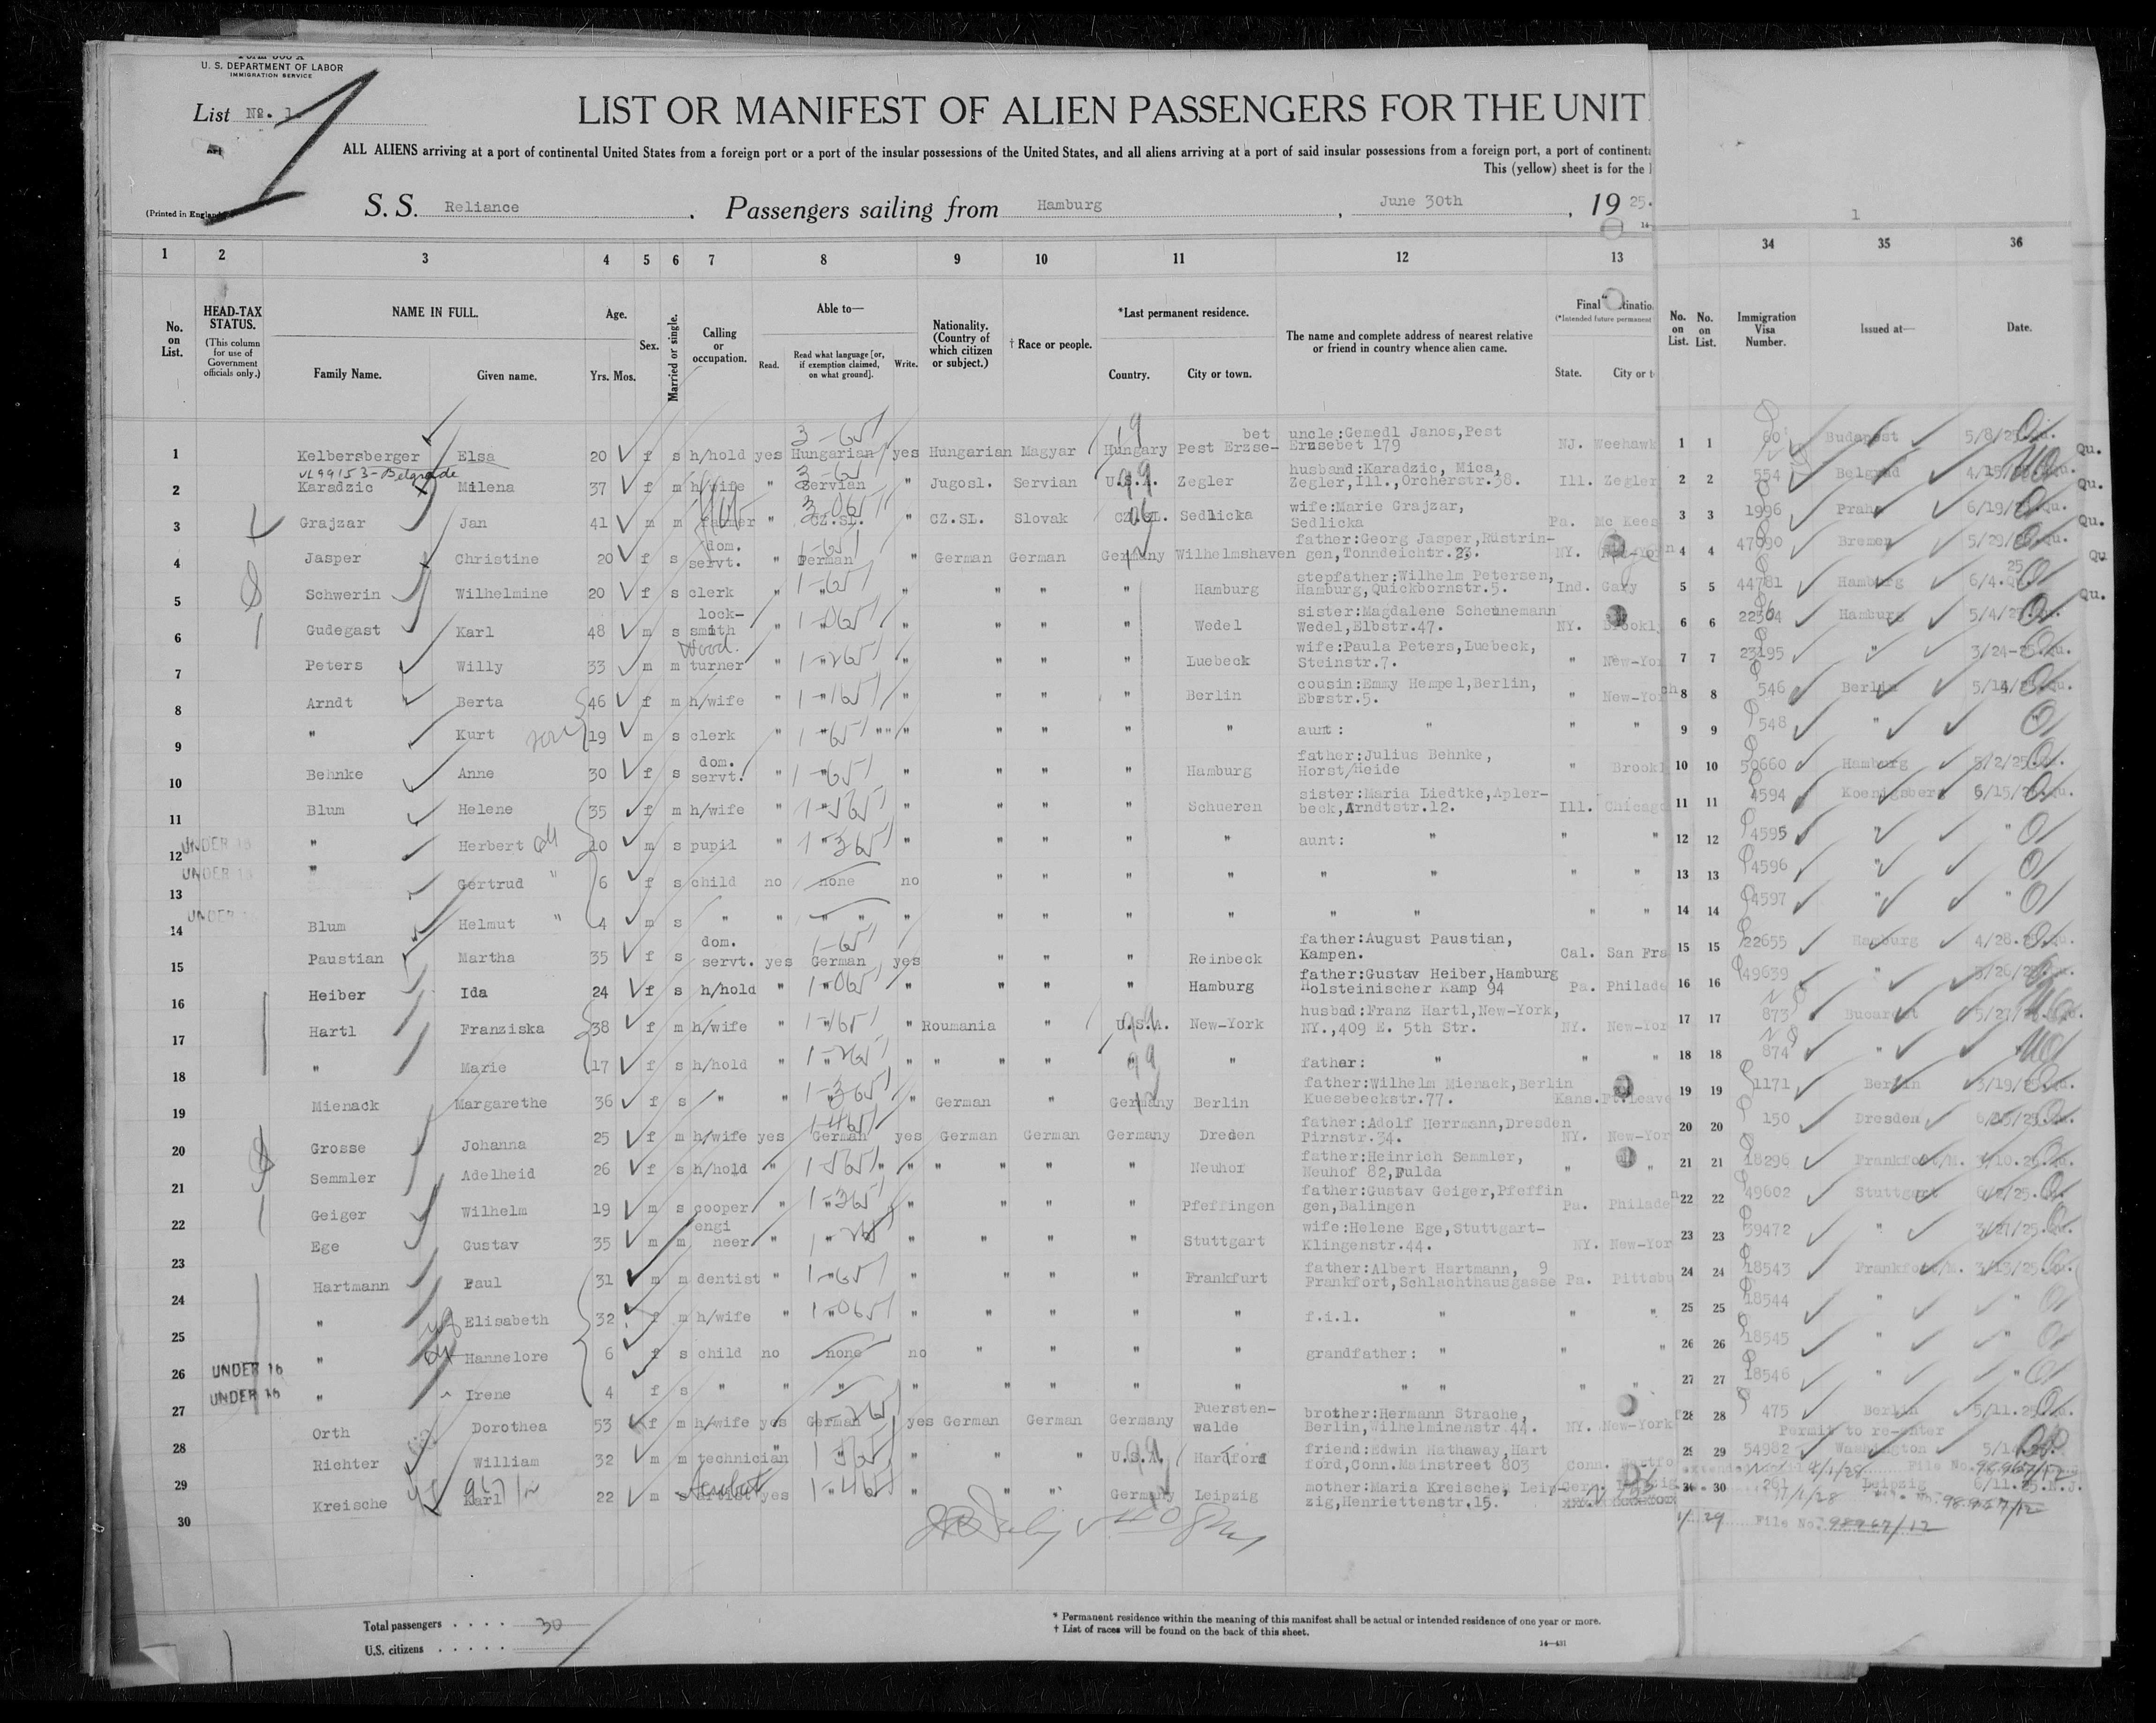 U. S. DEPARTMENT OF LABOR
IMMIGRATION SERVICE
List No. 1.
1
LIST OR MANIFEST OF ALIEN PASSENGERS FOR THE UNIT
ALL ALIENS arriving at a port of continental United States from a foreign port or a port of the insular possessions of the United States, and all aliens arriving at a port of said insular possessions from a foreign port, a port of continent
This (yellow) sheet is for the
(Printed in England)
S. S. Reliance . Passengers sailing from Hamburg , June 30th , 19 25.
1
1 2 3 4 5 6 7 8 9 10 11 12 13 34 35 36
No. on List. HEAD-TAX STATUS. (This column for use of Government officials only.) NAME IN FULL. Family Name. Given name. Age. Yrs. Mos. Sex. Married or single. Calling or occupation. Able to— Read. Read what language [or, if exemption claimed, on what ground]. Write. Nationality. (Country of which citizen or subject.) † Race or people. *Last permanent residence. Country. City or town. The name and complete address of nearest relative or friend in country whence alien came. Final (*Intended future permanent State. City or t No. on List. No. on List. Immigration Visa Number. Issued at— Date.
1 Kelbersberger Elsa 20 f s h/hold yes Hungarian yes Hungarian Magyar Hungary Pest Erzse-bet uncle:Gemedl Janos,Pest Erzsebet 179 NJ. Weehawk 1 1 60 Budapest 5/8/25 Qu.
VL99153-Belgrade
2 Karadzic Milena 37 f m h/wife " Servian " Jugosl. Servian U.S.A. Zegler husband:Karadzic, Mica, Zegler,Ill.,Orcherstr.38. Ill. Zegler 2 2 554 Belgrad 4/15/ Qu.
3 Grajzar Jan 41 m m farmer " CZ.SL. " CZ.SL. Slovak CZ.SL. Sedlicka wife:Marie Grajzar, Sedlicka Pa. Mc Kees 3 3 1996 Praha 6/19/ Qu.
4 Jasper Christine 20 f s dom. servt. " German " German German Germany Wilhelmshaven father:Georg Jasper,Rüstrin-gen,Tonndeichtr.23. NY. 4 4 47090 Bremen 5/29/ Qu
5 Schwerin Wilhelmine 20 f s clerk " " " " " " Hamburg stepfather:Wilhelm Petersen, Hamburg,Quickbornstr.5. Ind. Gary 5 5 44781 Hamburg 6/4.25 Qu.
6 Gudegast Karl 48 m s lock-smith " " " " " " Wedel sister:Magdalene Scheunemann Wedel,Elbstr.47. NY. Brookl 6 6 Hamburg 5/4/
7 Peters Willy 33 m m Wood. turner " " " " " " Luebeck wife:Paula Peters,Luebeck, Steinstr.7. " New-Yor 7 7 23195 " 3/24-25.Qu.
8 Arndt Berta 46 f m h/wife " " " " " " Berlin cousin:Emmy Hempel,Berlin, Ebrstr.5. " New-Yor 8 8 546 Berlin 5/14/25 Qu.
9 " Kurt 19 m s clerk " " " " " " " aunt: " " " 9 9 548 " "
10 Behnke Anne 30 f s dom. servt. " " " " " " Hamburg father:Julius Behnke, Horst/Heide " Brookl 10 10 50660 Hamburg 5/2/25.Qu.
11 Blum Helene 35 f m h/wife " " " " " " Schueren sister:Maria Liedtke,Apler-beck,Arndtstr.12. Ill. Chicago 11 11 4594 Koenigsberg 6/15/25.Qu.
UNDER 16
12 " Herbert 10 m s pupil " " " " " " " aunt: " " " 12 12 4595 " "
UNDER 16
13 " Gertrud " 6 f s child no none no " " " " " " " " 13 13 4596 "
UNDER 16
14 Blum Helmut " 4 m s " " " " " " " " " " " " " 14 14 4597 " "
15 Paustian Martha 35 f s dom. servt. yes German yes " " " Reinbeck father:August Paustian, Kampen. Cal. San Fra 15 15 22655 Hamburg 4/28.25.Qu.
16 Heiber Ida 24 f s h/hold " " " " " " Hamburg father:Gustav Heiber,Hamburg Holsteinischer Kamp 94 Pa. Philade 16 16 49639 " 5/26/25.Qu.
17 Hartl Franziska 38 f m h/wife " " " Roumania " U.S.A. New-York husbad:Franz Hartl,New-York, NY.,409 E. 5th Str. NY. New-Yor 17 17 873 Bucarest 5/27/
18 " Marie 17 f s h/hold " " " " " " " " father: " " " 18 18 874 " "
19 Mienack Margarethe 36 f s " " " " German " Germany Berlin father:Wilhelm Mienack,Berlin Kuesebeckstr.77. Kans. Ft.Leave 19 19 1171 Berlin 3/19/25.Qu.
20 Grosse Johanna 25 f m h/wife yes German yes German German Germany Dreden father:Adolf Herrmann,Dresden Pirnstr.34. NY. New-Yor 20 20 150 Dresden
21 Semmler Adelheid 26 f s h/hold " " " " " " " Neuhof father:Heinrich Semmler, Neuhof 82,Fulda " " 21 21 18296 Frankfort/M. 3/10.25.Qu.
22 Geiger Wilhelm 19 m s cooper " " " " " " Pfeffingen father:Gustav Geiger,Pfeffin gen,Balingen Pa. Philade 22 22 49602 Stuttgart
23 Ege Gustav 35 m m engi neer " " " " " " Stuttgart wife:Helene Ege,Stuttgart-Klingenstr.44. NY. New-Yor 23 23 39472 " 3/27/25.Qu.
24 Hartmann Paul 31 m m dentist " " " " " " Frankfurt father:Albert Hartmann, 9 Frankfort,Schlachthausgasse Pa. Pittsbu 24 24 18543 Frankfort/M. 3/13/25.Qu.
25 " Elisabeth 32 f m h/wife " " " " " " " f.i.l. " " " 25 25 18544 " "
26 " Hannelore 6 f s child no none no " " " " grandfather: " " " 26 26 18545 " "
UNDER 16
27 " Irene 4 f s " " " " " " " " " " " " 27 27 18546 " "
UNDER 16
28 Orth Dorothea 53 f m h/wife yes German yes German German Germany Fuersten-walde brother:Hermann Strache, Berlin,Wilhelminenstr.44. NY. New-York 28 28 475 Berlin 5/11.25.Qu.
Permit to re-enter
29 Richter William 32 m m technician " " " " " U.S.A. Hardford friend:Edwin Hathaway,Hart ford,Conn.Mainstreet 803 Conn. Hartfo 29 29 54982 Washington 5/14
File No. 98967/12
30 Kreische Karl 22 m s artist Acrobat yes " " " " Germany Leipzig mother:Maria Kreische, Leip-zig,Henriettenstr.15. 30 30 261 Leipzig 6/11.25.N.J.
98967/12
File No. 98967/12
Total passengers . . . . 30
U.S. citizens . . . . .
* Permanent residence within the meaning of this manifest shall be actual or intended residence of one year or more.
† List of races will be found on the back of this sheet.
14—431